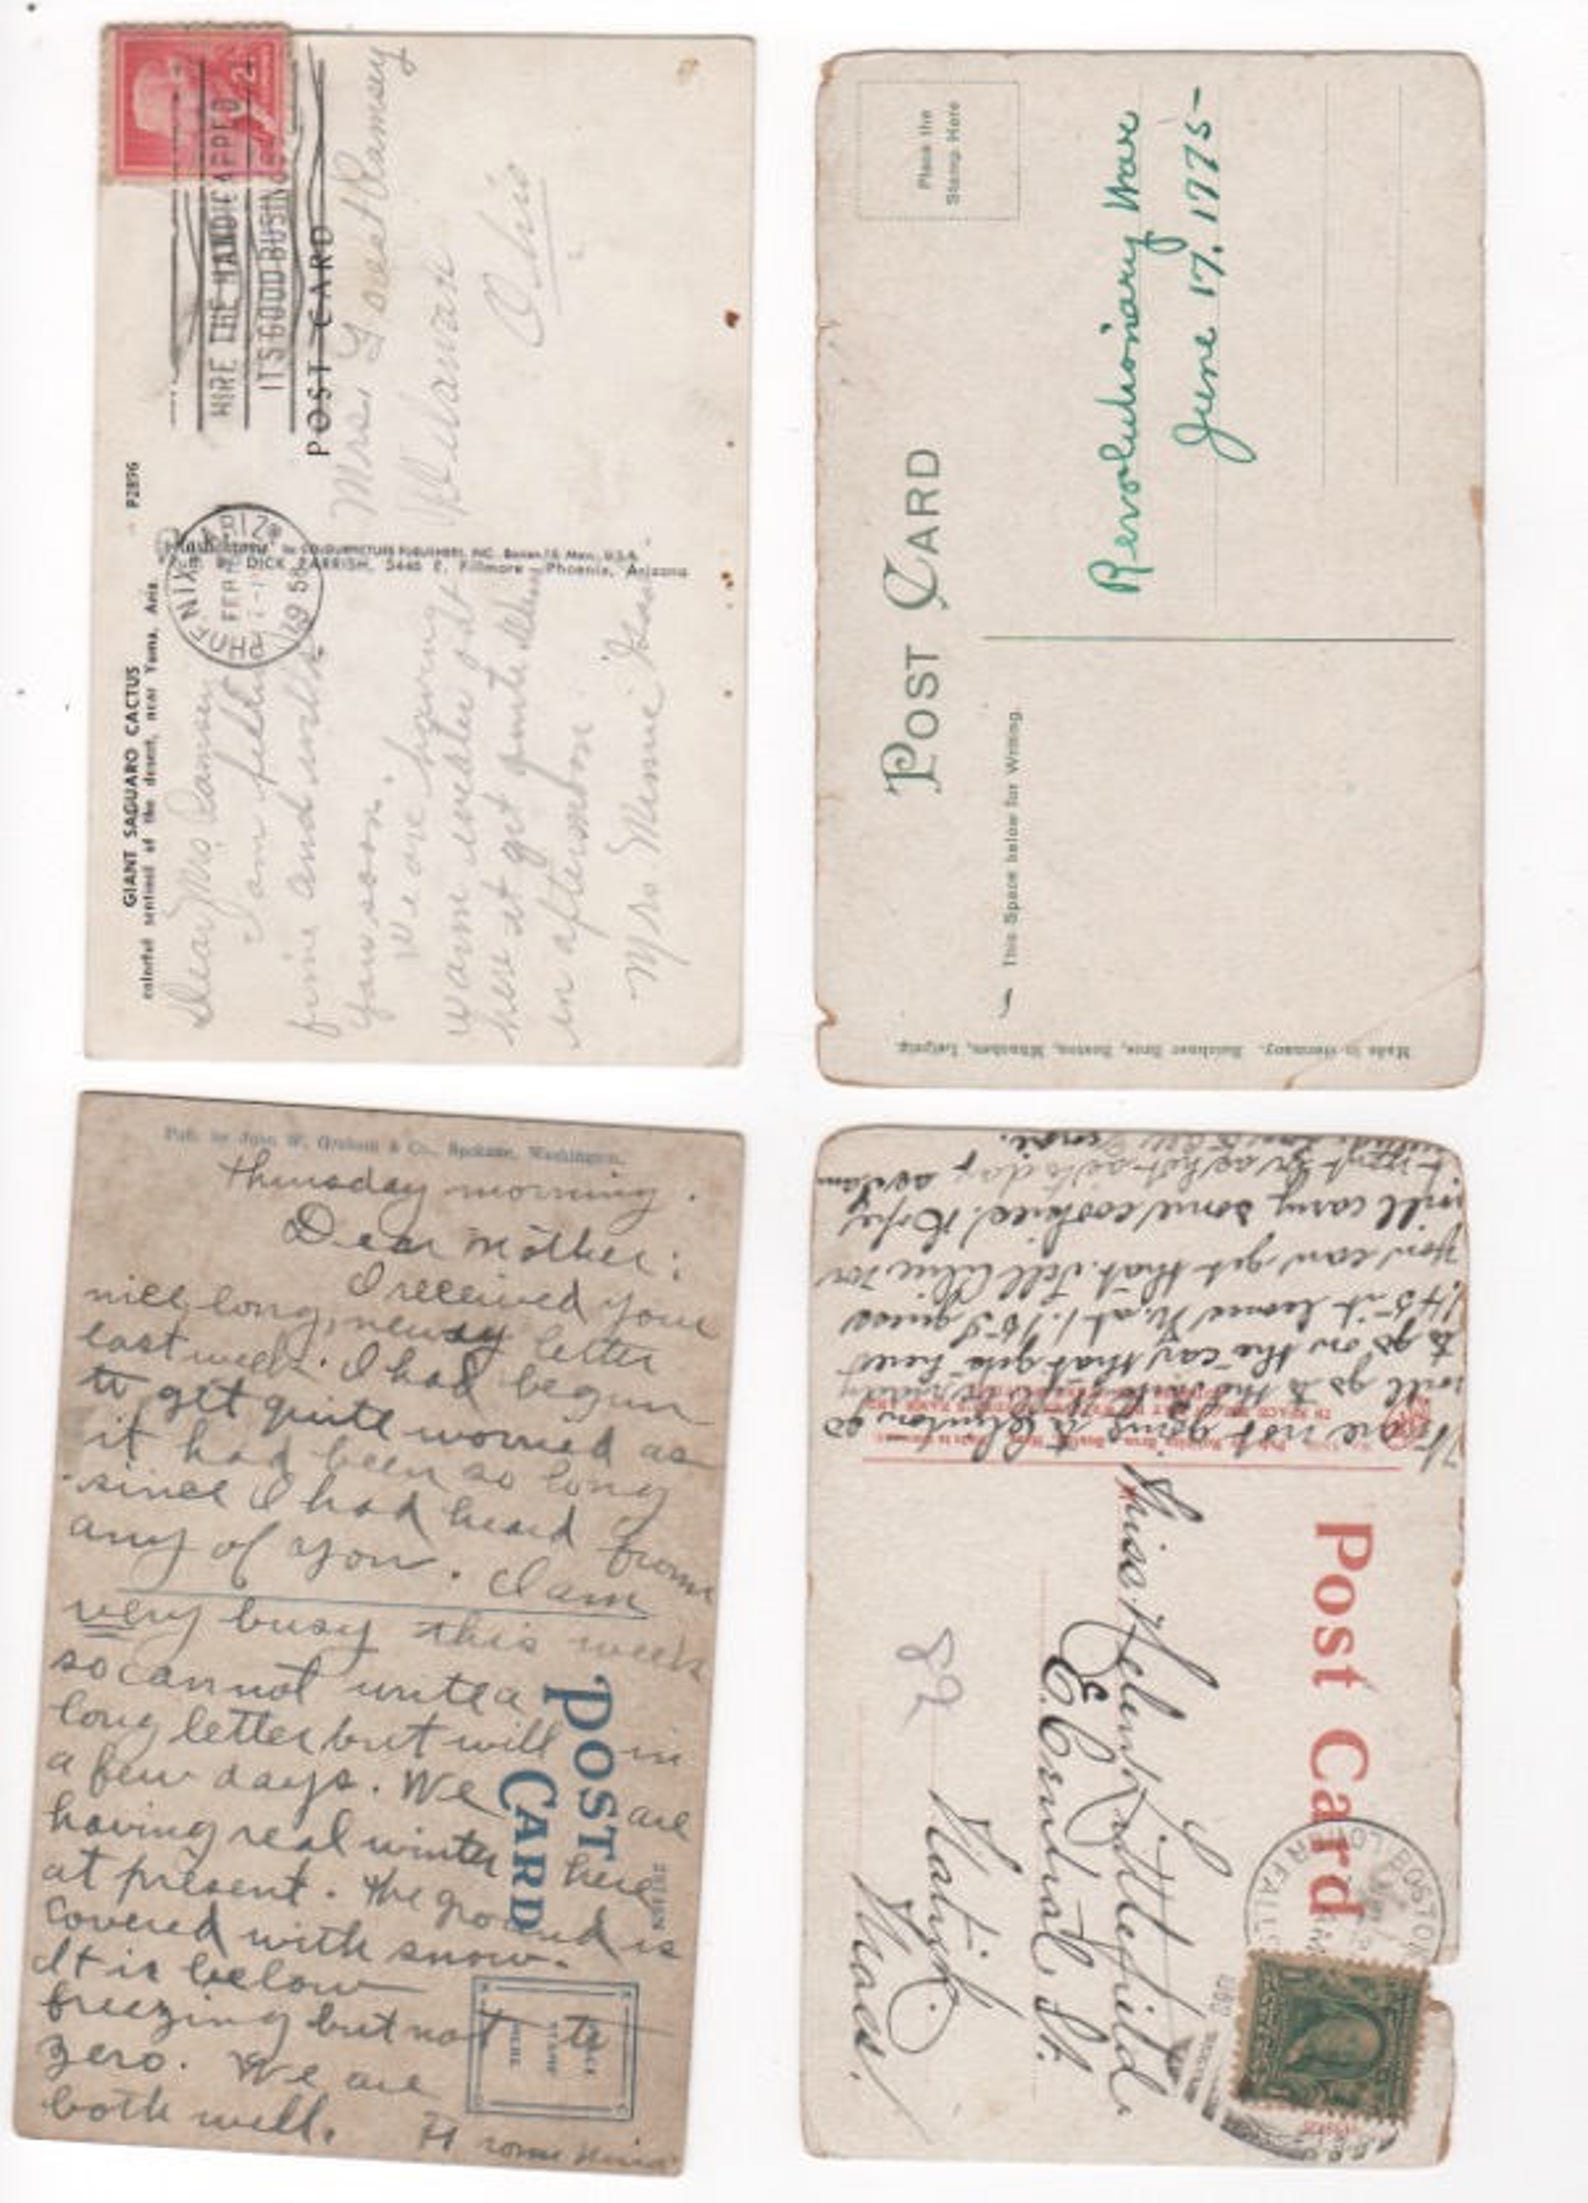 GIANT SAGUARO CACTUS
colorful sentinel of the desert, near Yuma, Ariz
P2896
HIRE THE HANDICAPPED
IT'S GOOD BUSINESS
PHOENIX ARIZ
FEB
1958
2
POST CARD
Pub. By DICK PARRISH, 5446 E. Fillmore - Phoenix, Arizona
Dear Mrs Ramsey
I am feeling
fine and
you soon.
We are having
warm weather
here it get quite
in afternoon
Mrs Minnie
Mrs. Ramsey
Delaware
Ohio
Place the
Stamp Here
POST CARD
This Space below for Writing.
Revolutionary War
June 17. 1775-
Made in Germany. Reichner Bros, Boston, München, Leipzig.
Pub. by John W. Graham & Co., Spokane, Washington.
Thursday morning.
Dear Mother:
I received your
nice, long, newsy letter
last week. I had begun
to get quite worried as
it had been so long
since I had heard from
any of you. I am
very busy this week
so cannot write a
long letter but will in
a few days. We are
having real winter here
at present. The ground is
covered with snow.
It is below
freezing but not to
zero. We are
both well.
From
POST
CARD
PLACE
STAMP
HERE
We are not going to Clinton so
will go to the
to go on the car that gets here
1.45 it leaves N. at 1.18 I guess
you can get that. Tell Alice
will carry some cookies. Hope
it won't be as hot as to day
Post Card
Miss Helen Littlefield
E. Central St.
Natick
Mass.
BOSTON
LOWER FALLS